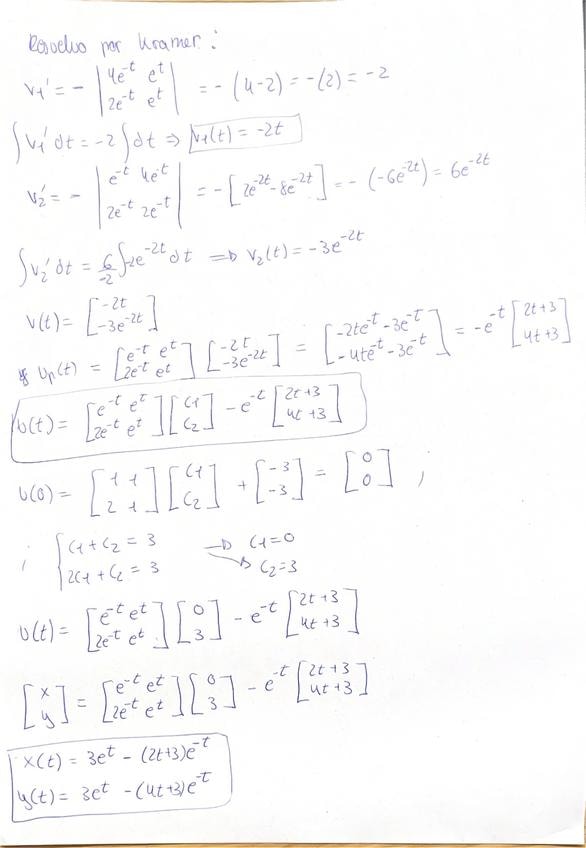 Resuelvo por Kramer:
v1' = - | 4e^-t e^t ; 2e^-t e^t | = - (4-2) = -(2) = -2
∫ v1' dt = -2 ∫ dt ⇒ v1(t) = -2t
v2' = - | e^-t 4e^-t ; 2e^-t 2e^-t | = - [2e^-2t - 8e^-2t] = - (-6e^-2t) = 6e^-2t
∫ v2' dt = 6/-2 ∫ -2e^-2t dt ⇒ v2(t) = -3e^-2t
v(t) = [ -2t ; -3e^-2t ]
Up(t) = [ e^-t e^t ; 2e^-t e^t ] [ -2t ; -3e^-2t ] = [ -2te^-t - 3e^-t ; -4te^-t - 3e^-t ] = -e^-t [ 2t+3 ; 4t+3 ]
U(t) = [ e^-t e^t ; 2e^-t e^t ] [ C1 ; C2 ] - e^-t [ 2t+3 ; 4t+3 ]
U(0) = [ 1 1 ; 2 1 ] [ C1 ; C2 ] + [ -3 ; -3 ] = [ 0 ; 0 ] ;
; { C1 + C2 = 3 → C1 = 0
2C1 + C2 = 3 → C2 = 3
U(t) = [ e^-t e^t ; 2e^-t e^t ] [ 0 ; 3 ] - e^-t [ 2t+3 ; 4t+3 ]
[ x ; y ] = [ e^-t e^t ; 2e^-t e^t ] [ 0 ; 3 ] - e^-t [ 2t+3 ; 4t+3 ]
x(t) = 3e^t - (2t+3)e^-t
y(t) = 3e^t - (4t+3)e^-t